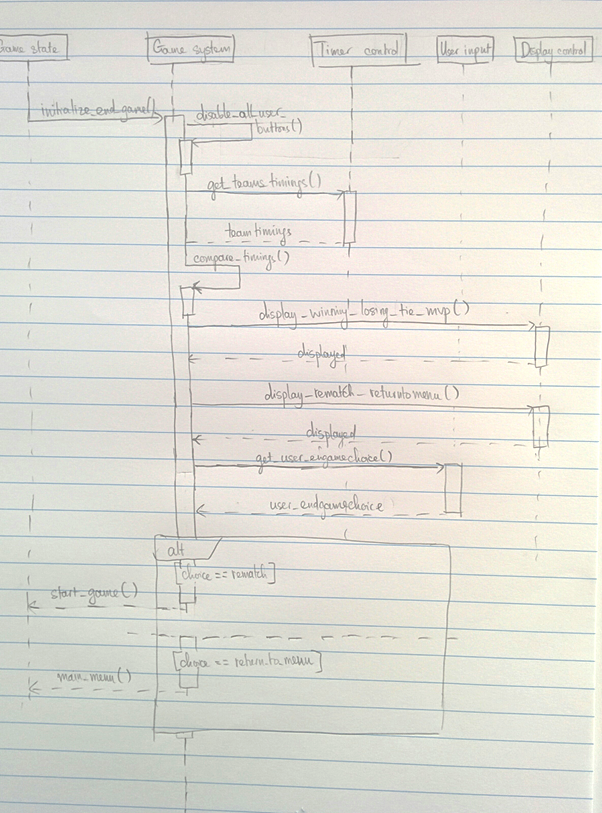 Game state
Game system
Timer control
User input
Display control
initialize_endgame()
disable_all_user_
buttons()
get_teams timings()
team timings
compare_timings()
display_winning_losing_tie_mvp()
displayed
display_rematch_returntomenu()
displayed
get_user_engamechoice()
user_endgamechoice
alt
[choice == rematch]
start_game()
[choice == return to menu]
main_menu()